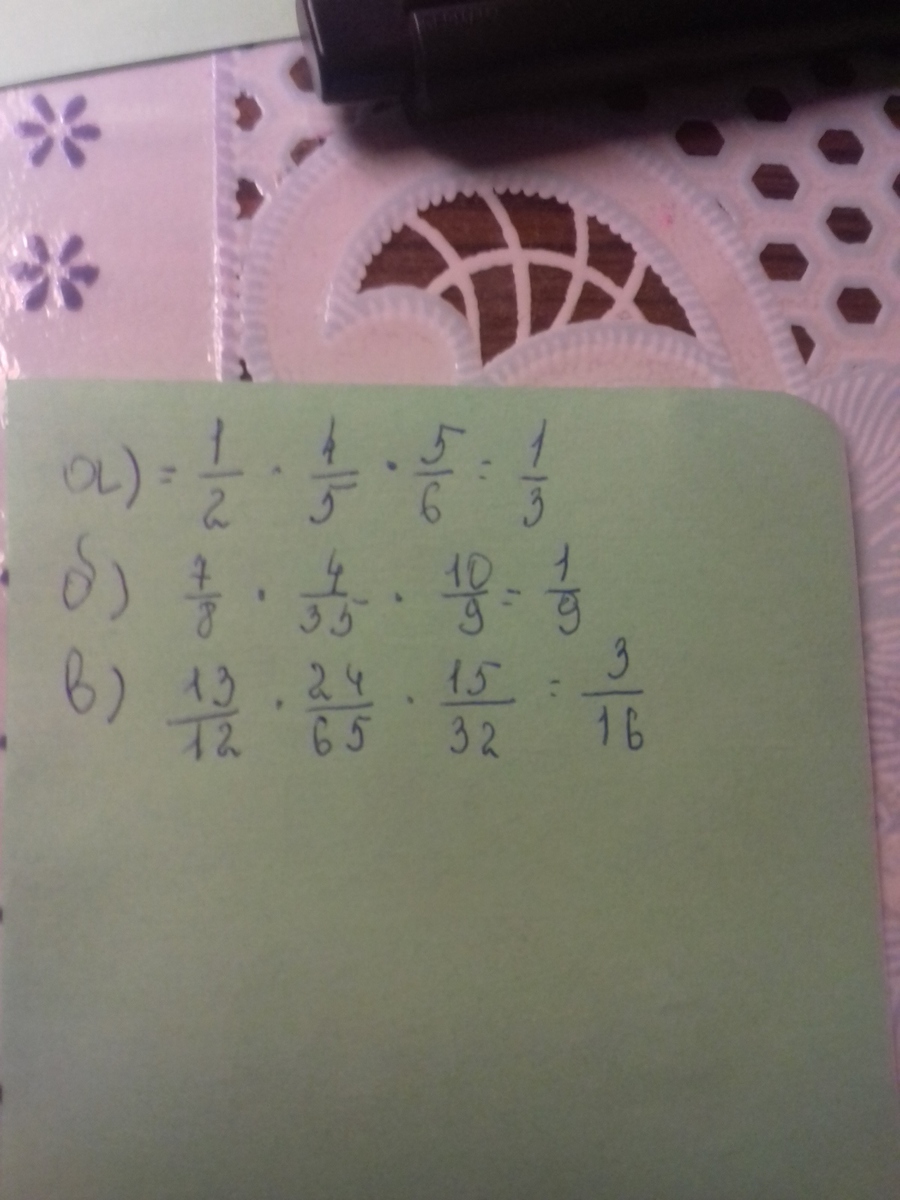 а) = 1/2 · 4/5 · 5/6 = 1/3
б) 7/8 · 4/35 · 10/9 = 1/9
в) 13/12 · 24/65 · 15/32 = 3/16